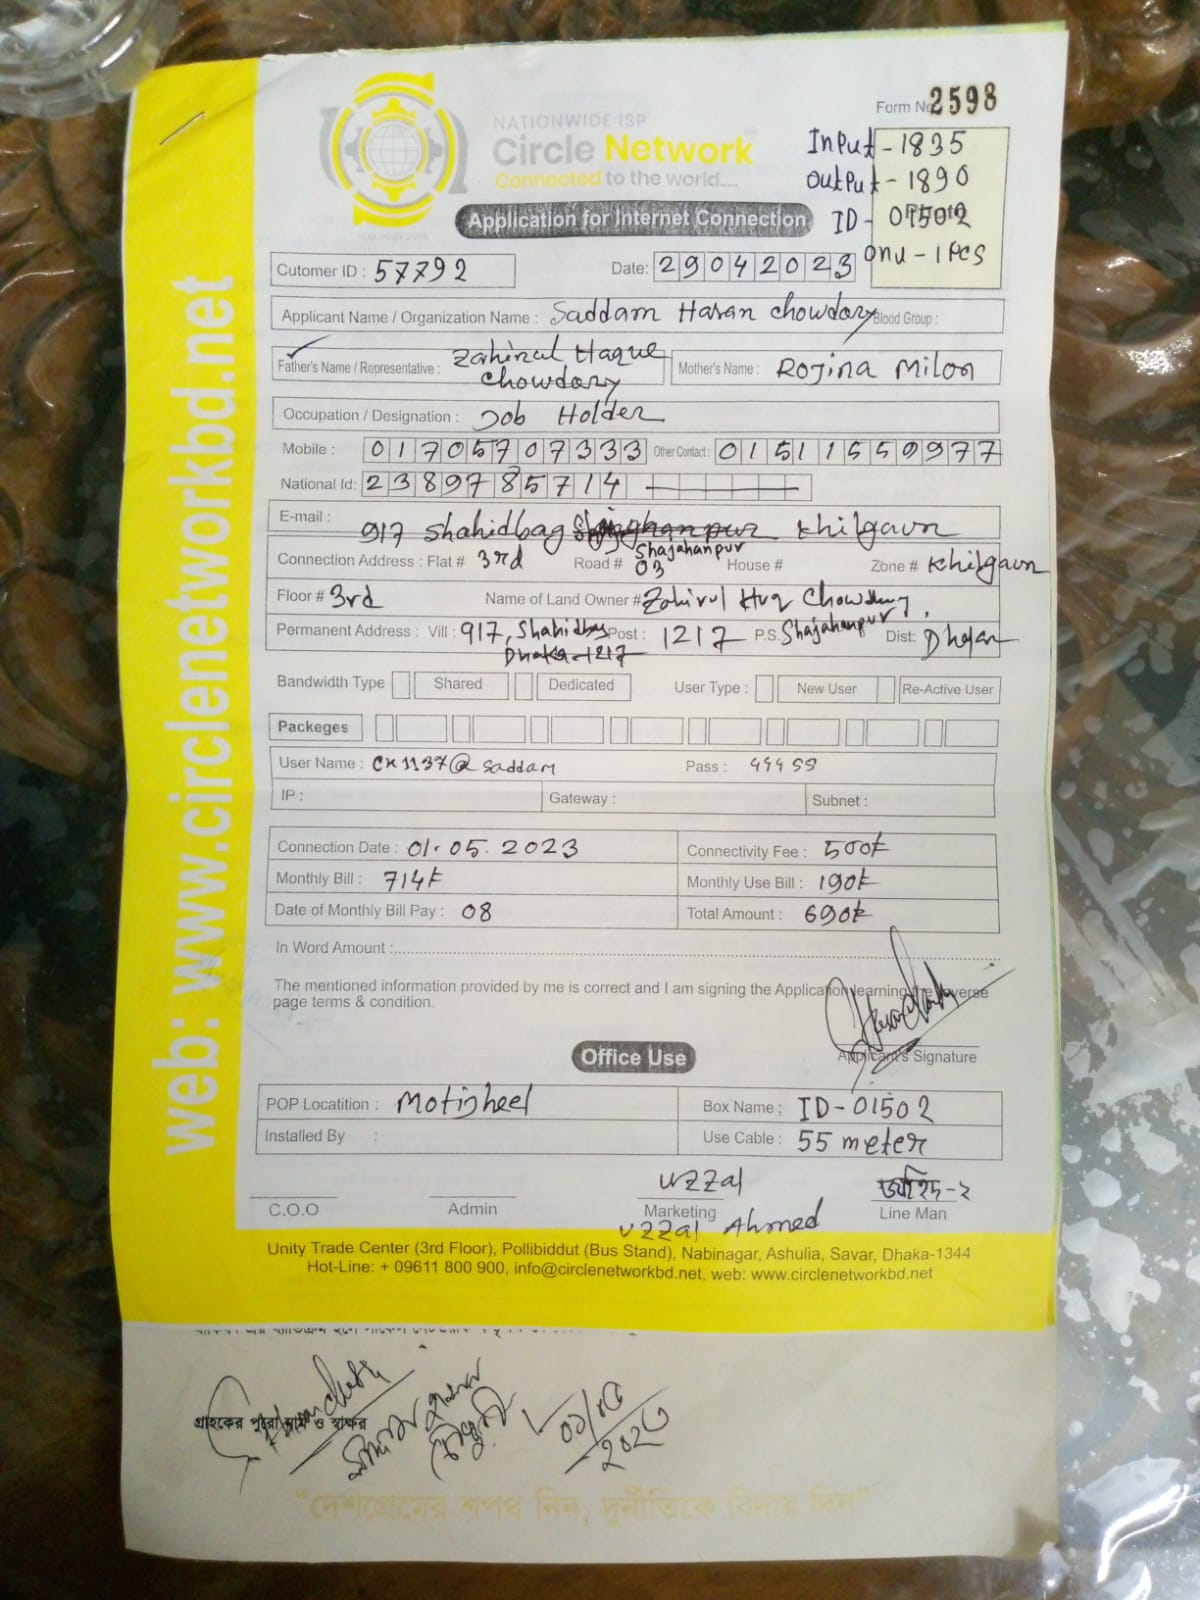 Form No 2598
NATIONWIDE ISP
Circle Network
Connected to the world.....
Input - 1835
Output - 1890
ID -
onu - 1 Pcs
Application for Internet Connection
Cutomer ID : 57792 Date: 29042023
Applicant Name / Organization Name : Saddam Hasan Chowdory Blood Group :
Father's Name / Representative : Zahirul Haque Chowdory Mother's Name : Rojina Milon
Occupation / Designation : Job Holder
Mobile : 01705707333 Other Contact : 01511559977
National Id: 2389785714
E-mail :
917 Shahidbag Shajahanpur Khilgaon
Connection Address : Flat # 3rd Road # 03 House # Zone # Khilgaon
Floor # 3rd Name of Land Owner # Zohirul Huq Chowdhury
Permanent Address : Vill : 917, Shahidbag Post : 1217 P.S. Shajahanpur Dist: Dhaka
Dhaka-1217
Bandwidth Type Shared Dedicated User Type : New User Re-Active User
Packeges
User Name : cn1137@saddam Pass :
IP : Gateway : Subnet :
Connection Date : 01.05.2023 Connectivity Fee : 500৳
Monthly Bill : 714৳ Monthly Use Bill : 190৳
Date of Monthly Bill Pay : 08 Total Amount : 690৳
In Word Amount :
The mentioned information provided by me is correct and I am signing the Application learning the reverse
page terms & condition.
Applicant's Signature
Office Use
POP Locatition : Motijheel Box Name ; ID-01502
Installed By : Use Cable : 55 meter
uzzal
C.O.O Admin Marketing Line Man
Uzzal Ahmed
Unity Trade Center (3rd Floor), Pollibiddut (Bus Stand), Nabinagar, Ashulia, Savar, Dhaka-1344
Hot-Line: + 09611 800 900, info@circlenetworkbd.net, web: www.circlenetworkbd.net
web: www.circlenetworkbd.net
গ্রাহকের পুরো নাম ও স্বাক্ষর
"দেশপ্রেমের শপথ নিন, দুর্নীতিকে বিদায় দিন"